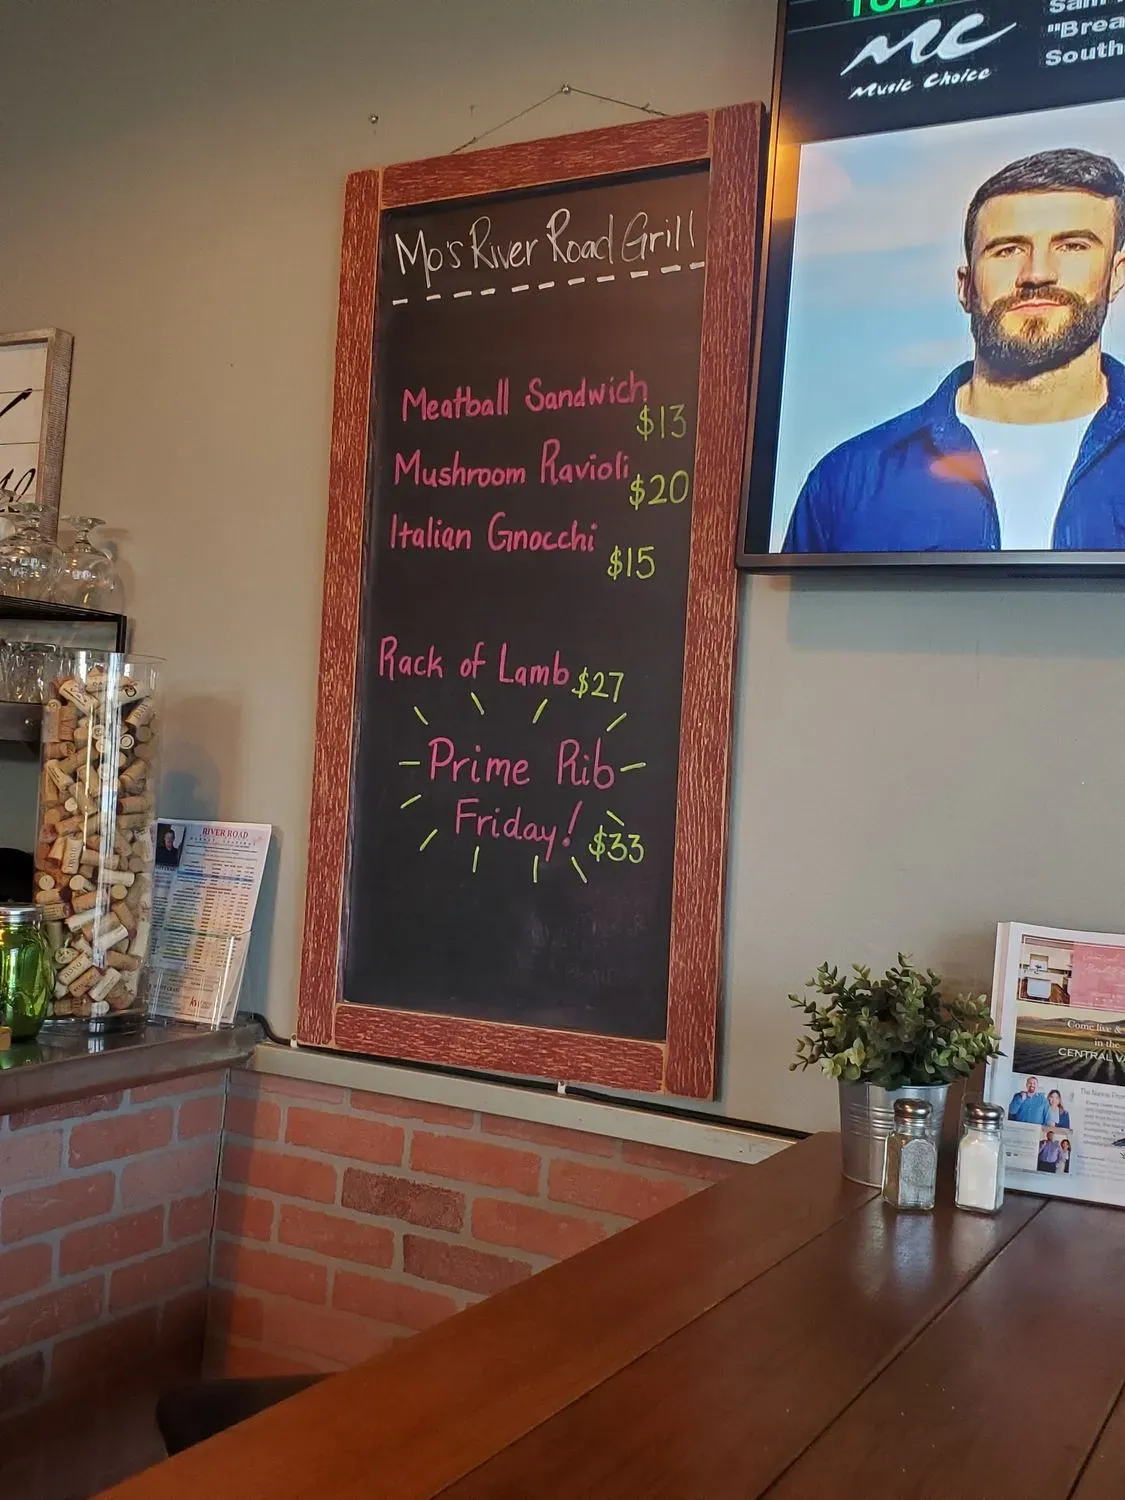 Mo's River Road Grill
Meatball Sandwich
$13
Mushroom Ravioli
$20
Italian Gnocchi
$15
Rack of Lamb $27
Prime Rib
Friday!
$33
MC
Music Choice
"Brea
South
RIVER ROAD
Come live &
in the
CENTRAL VA